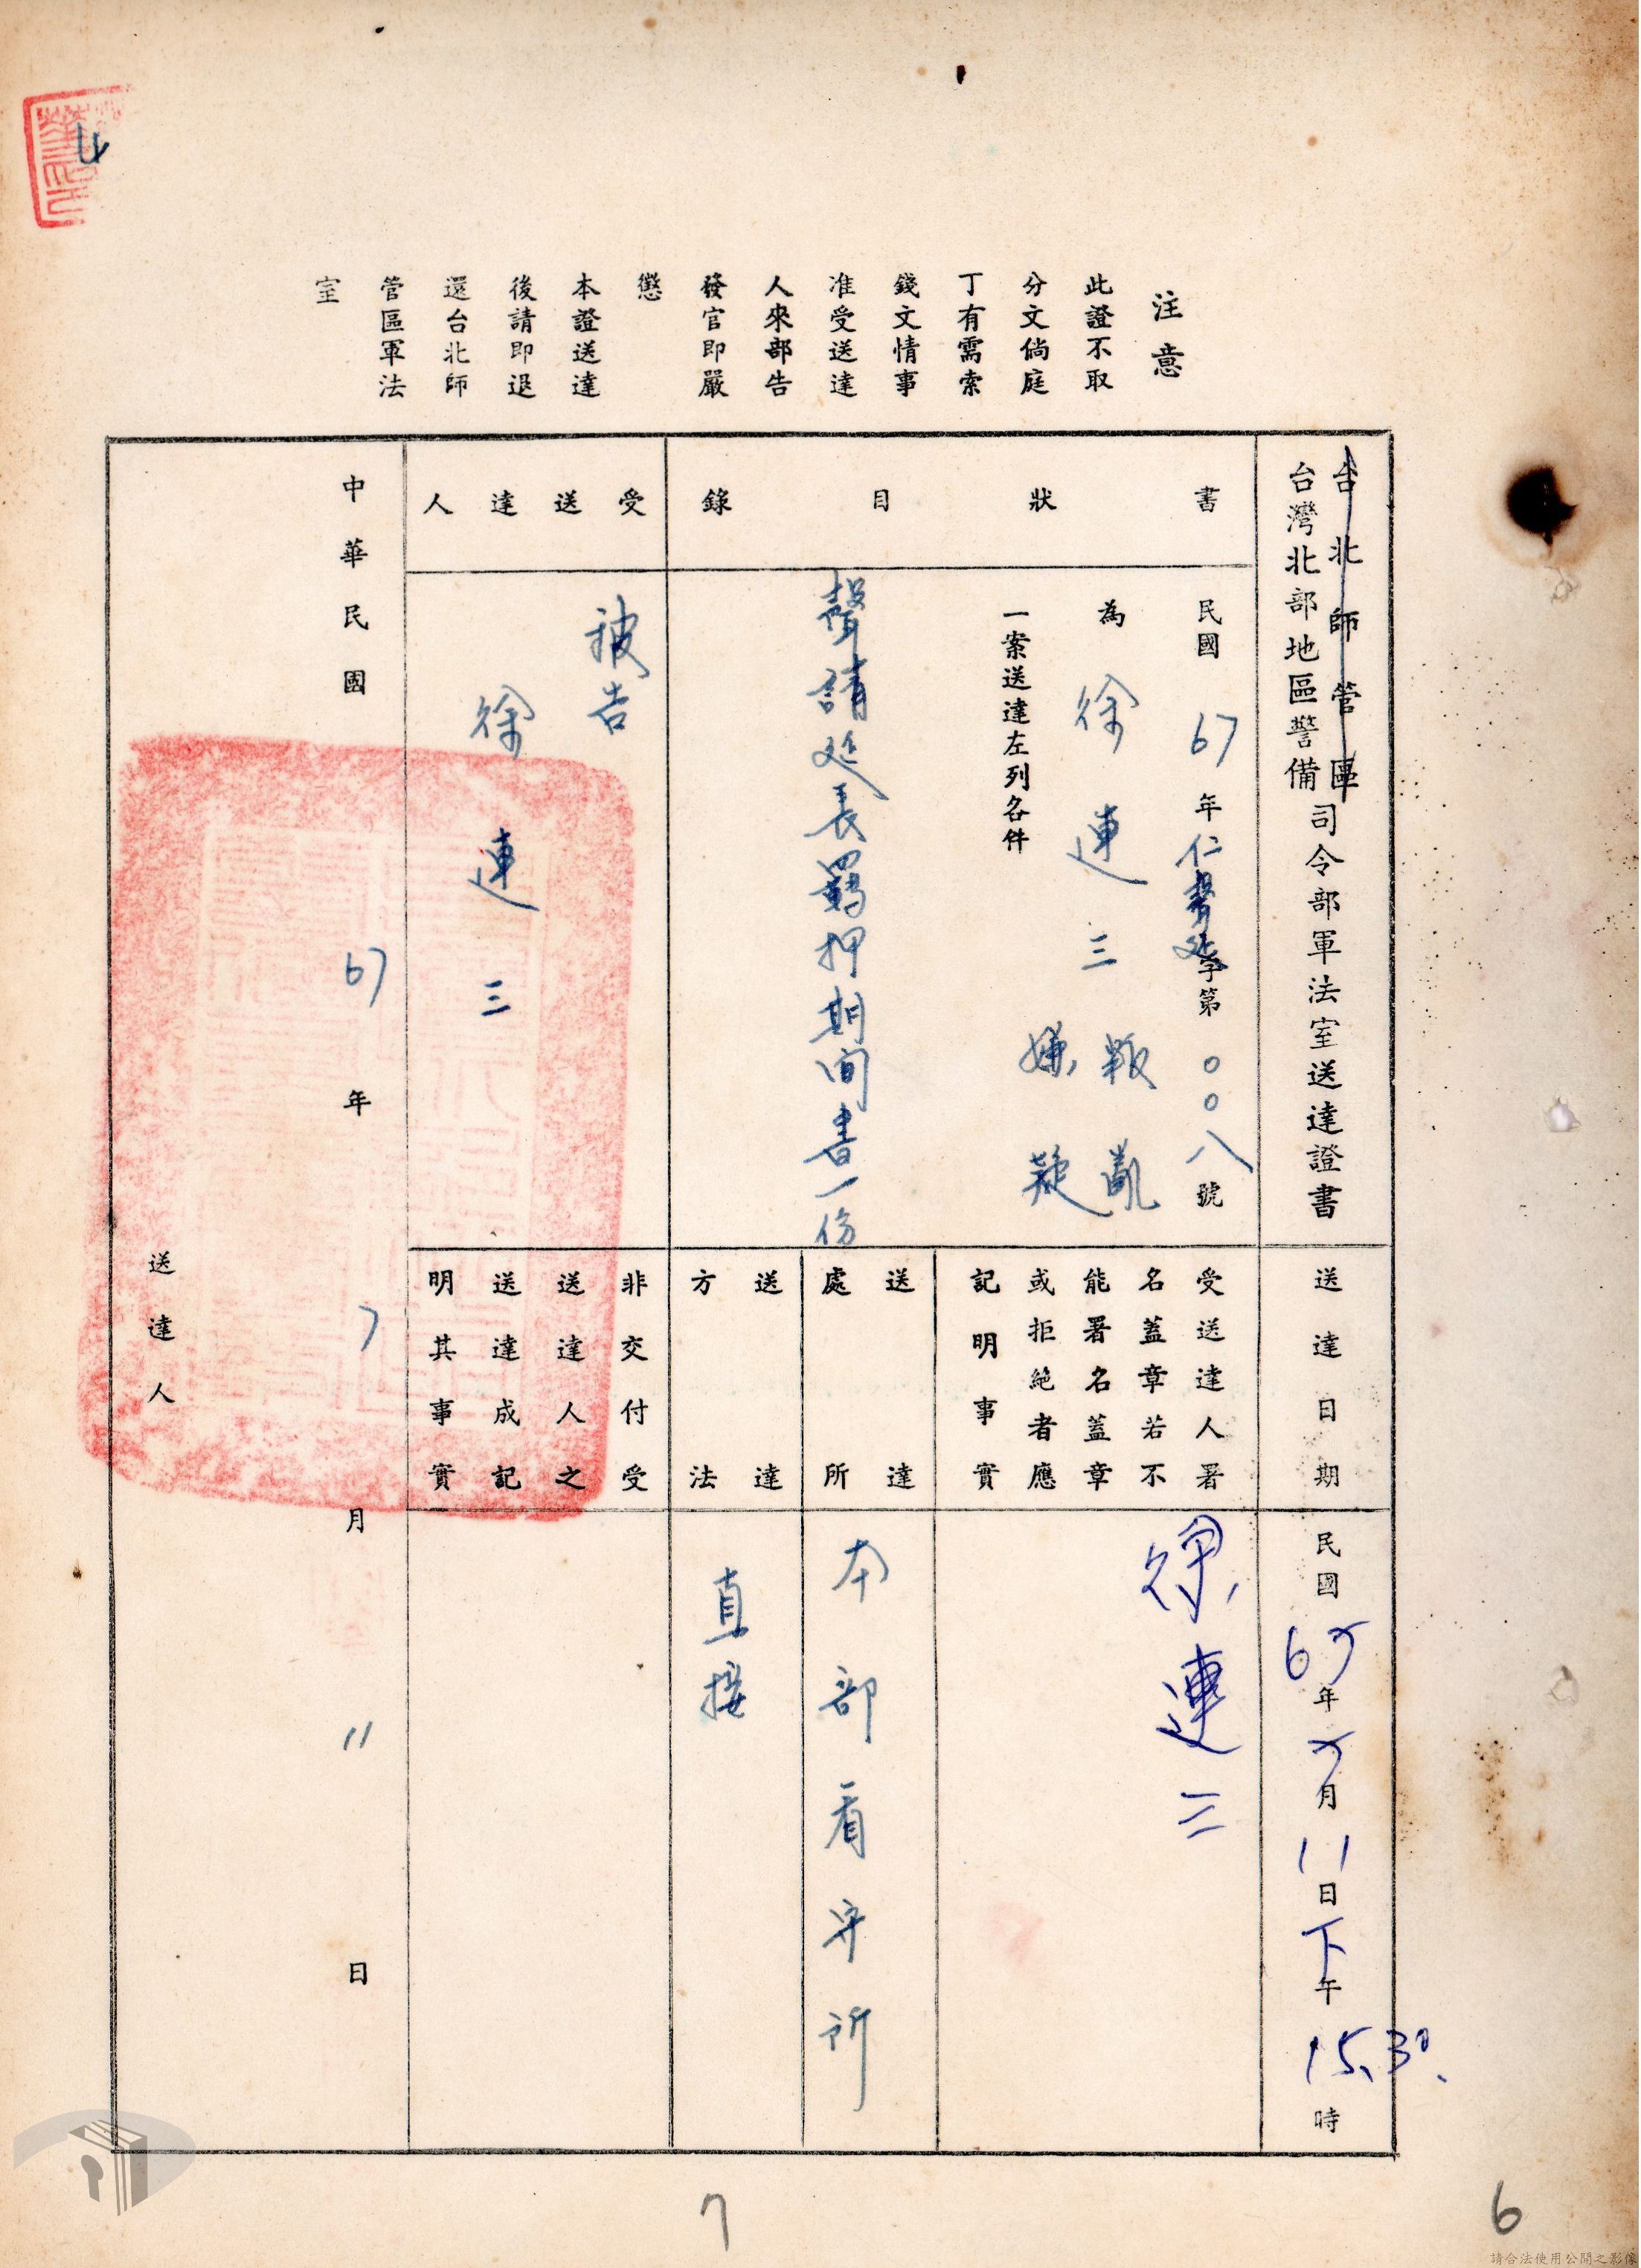 注意
此證不取
分文倘庭
丁有需索
錢文情事
准受送達
人來部告
發官即嚴
懲
本證送達
後請即退
還台北師
管區軍法
室
台北師管區
台灣北部地區警備
司令部軍法室送達證書
書狀目錄
民國67年仁聲延字第00八號
為徐連三叛亂
嫌疑
一案送達左列各件
聲請延長羈押期間書一份
受送達人
被告
徐連三
送達日期
民國67年7月11日下午15.30.時
受送達人署
名蓋章若不
能署名蓋章
或拒絕者應
記明事實
徐連三
送達
處所
本部看守所
送達
方法
直接
非交付受
送達人之
送達成記
明其事實
中華民國67年7月11日
送達人
7
6
請合法使用公開之影像